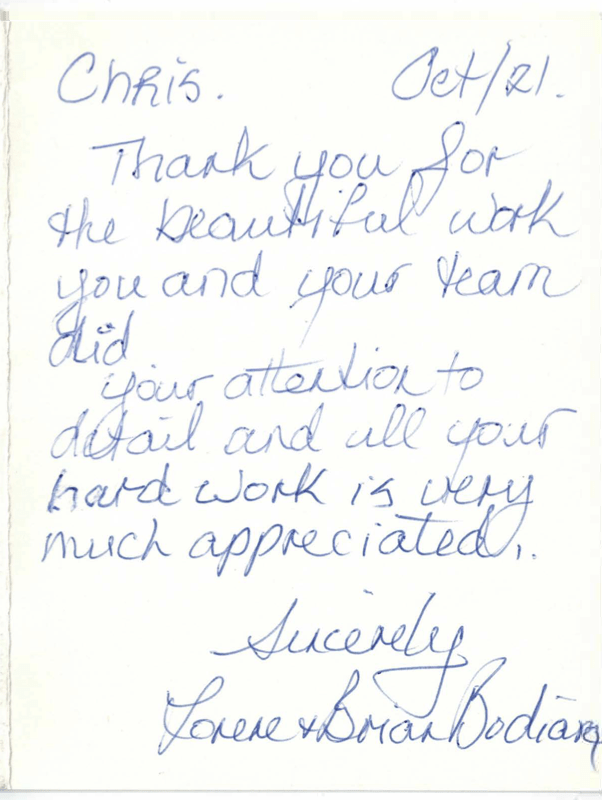 Chris. Oct/21.
Thank you for
the beautiful work
you and your team
did
your attention to
detail and all your
hard work is very
much appreciated.
Sincerely
Lorene & Brian